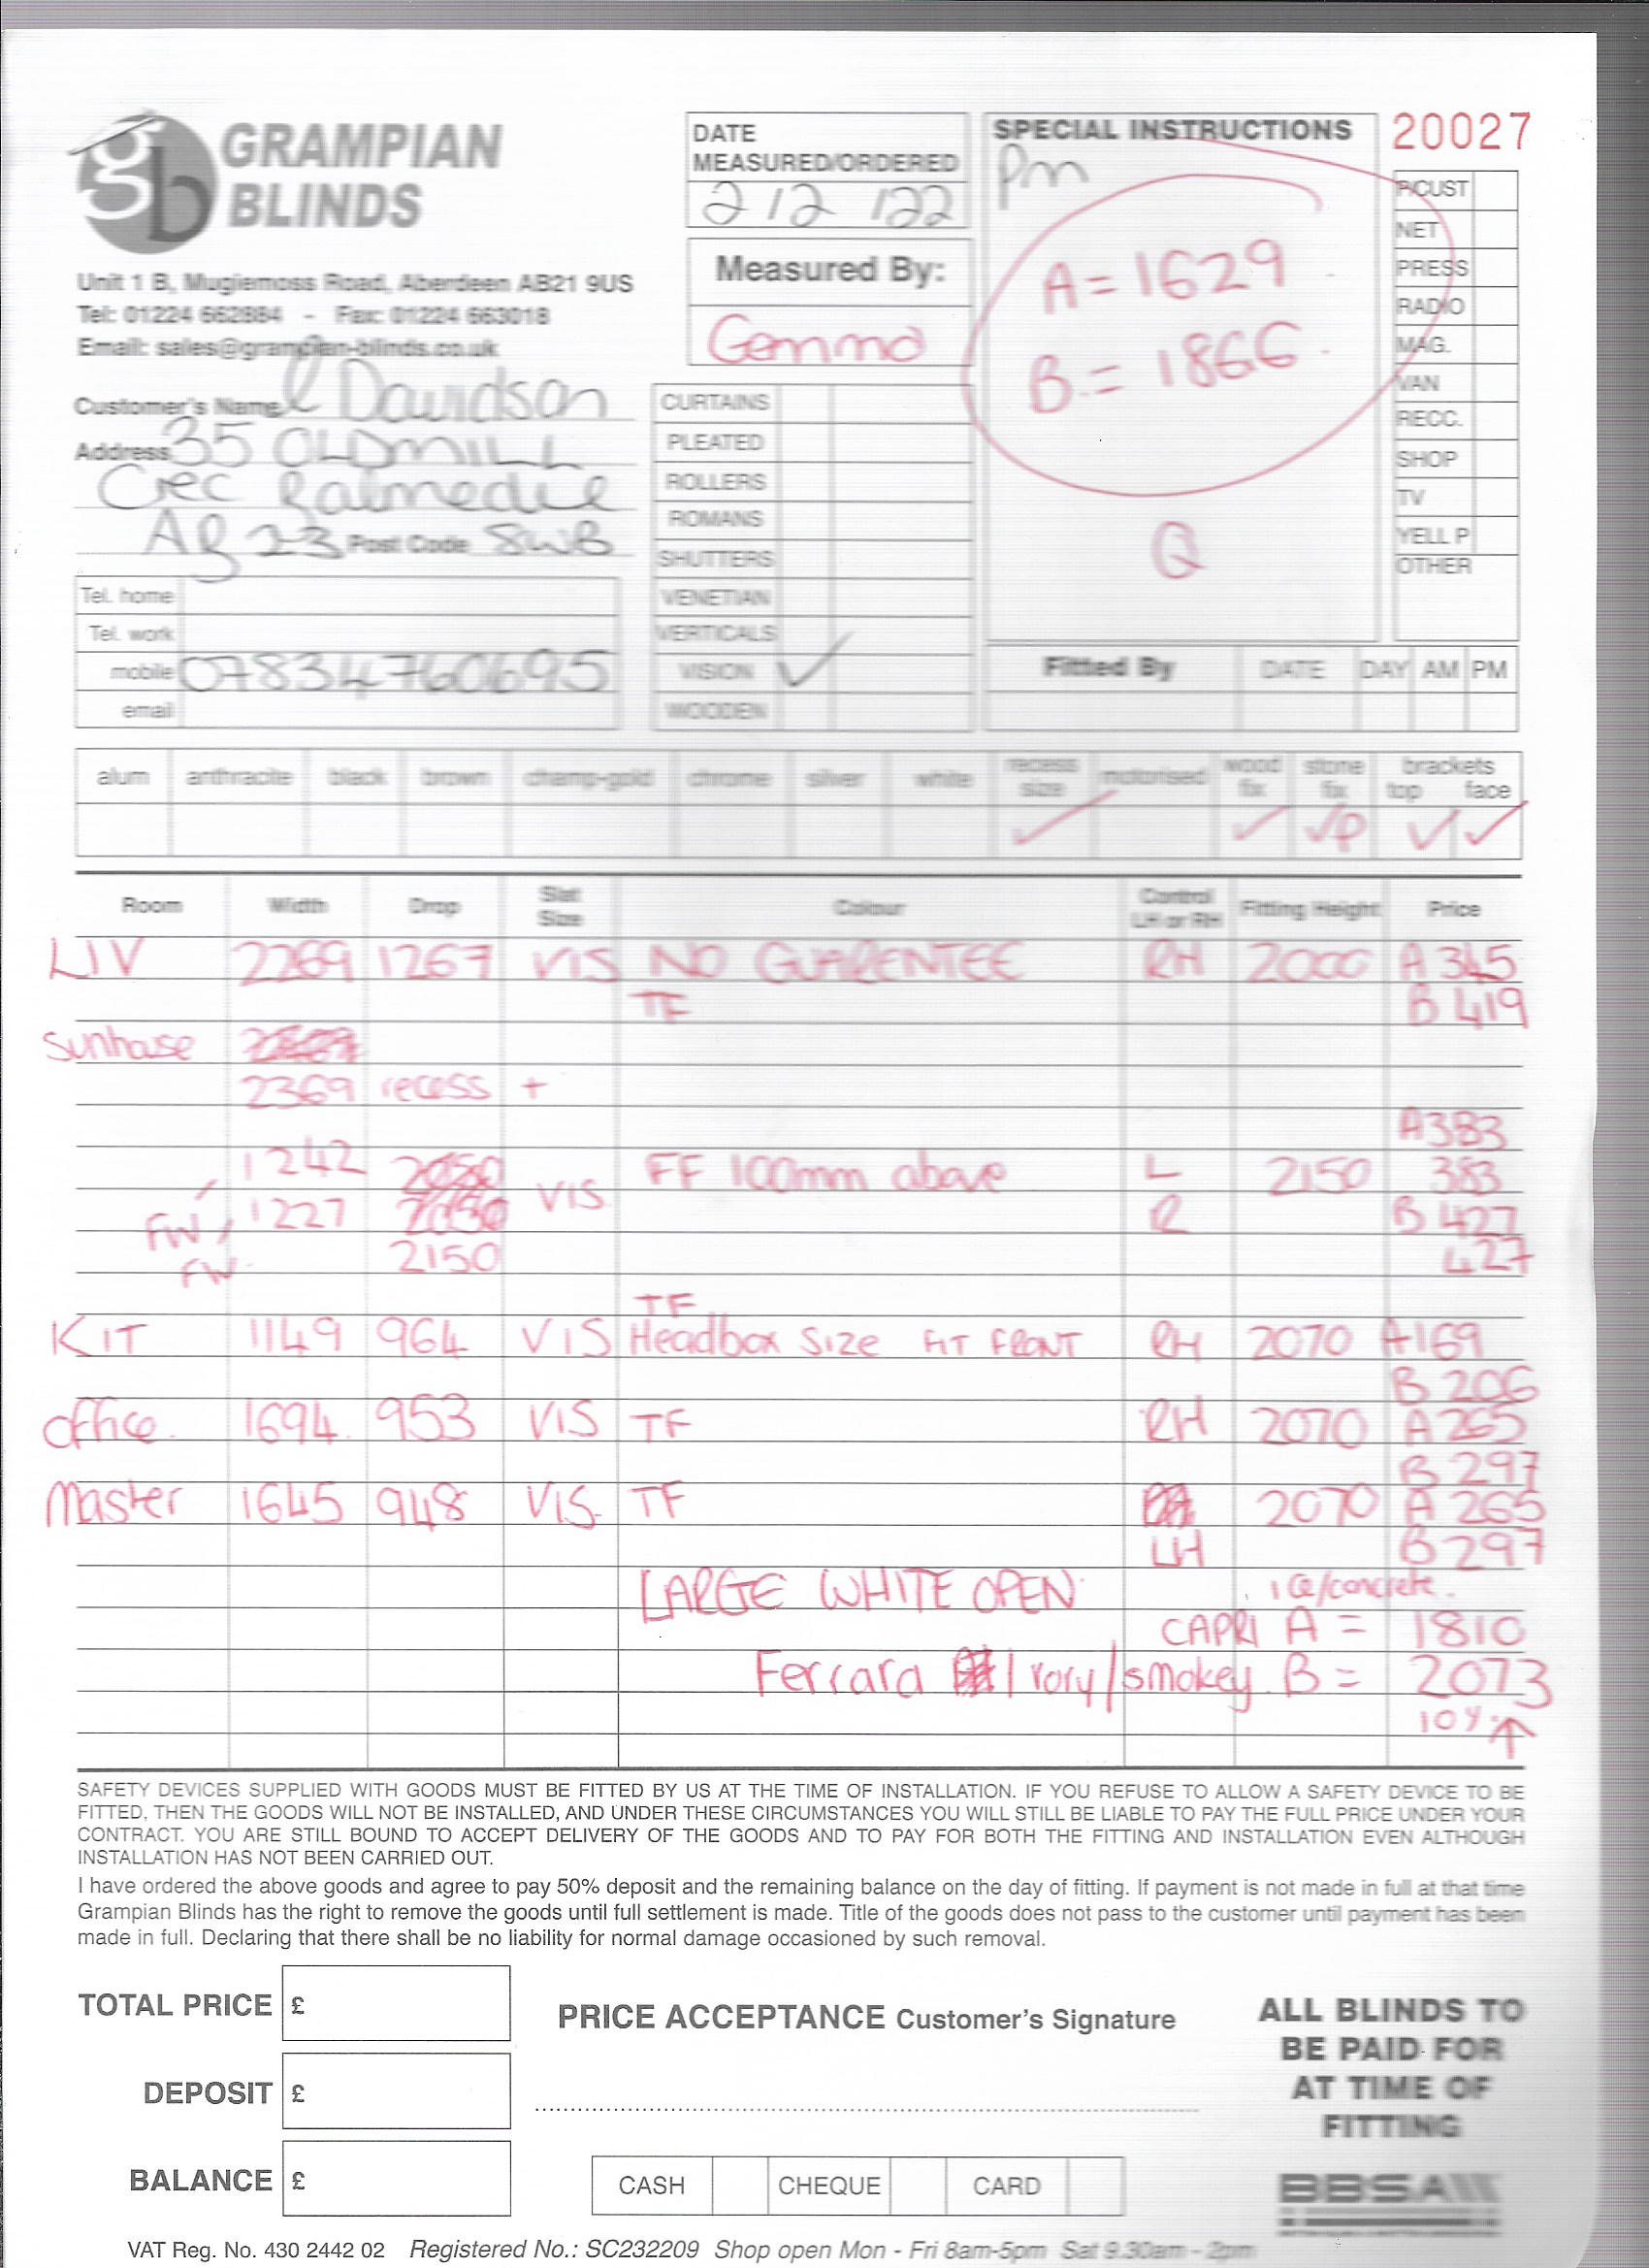 GRAMPIAN
BLINDS
Unit 1 B, Mugiemoss Road, Aberdeen AB21 9US
Tel: 01224 662884 - Fax: 01224 663018
Email: sales@grampian-blinds.co.uk
Customer's Name Davidson
Address 35 OLDMILL
Crec Balmedie
AB 23 Post Code 8WB
Tel. home
Tel. work
mobile 07834760695
email
DATE
MEASURED/ORDERED
2/2/22
Measured By:
Gemma
CURTAINS
PLEATED
ROLLERS
ROMANS
SHUTTERS
VENETIAN
VERTICALS
VISION ✓
WOODEN
SPECIAL INSTRUCTIONS
Pm
A = 1629
B = 1866
Q
20027
P.CUST
NET
PRESS
RADIO
MAG.
VAN
RECC.
SHOP
TV
YELL P
OTHER
Fitted By DATE DAY AM PM
alum anthracite black brown champ-gold chrome silver white recess size motorised wood fix stone fix brackets top face
✓ ✓ ✓P ✓ ✓
Room Width Drop Slat Size Colour Control LH or RH Fitting Height Price
LIV 2269 1267 VIS NO GUARENTEE RH 2000 A 345
TF B 419
Sunhouse
2369 recess +
A383
1242 VIS FF 100mm above L 2150 383
FW 1227 R B 427
FW 2150 427
TF
KIT 1149 964 VIS Headbox Size FIT FRONT RH 2070 A169
B 206
Office 1694 953 VIS TF RH 2070 A 265
B 297
Master 1645 948 VIS TF 2070 A 265
LH B 297
LARGE WHITE OPEN ice/concrete.
CAPRI A = 1810
Ferrara Ivory/smokey B = 2073
10% ↑
SAFETY DEVICES SUPPLIED WITH GOODS MUST BE FITTED BY US AT THE TIME OF INSTALLATION. IF YOU REFUSE TO ALLOW A SAFETY DEVICE TO BE
FITTED, THEN THE GOODS WILL NOT BE INSTALLED, AND UNDER THESE CIRCUMSTANCES YOU WILL STILL BE LIABLE TO PAY THE FULL PRICE UNDER YOUR
CONTRACT. YOU ARE STILL BOUND TO ACCEPT DELIVERY OF THE GOODS AND TO PAY FOR BOTH THE FITTING AND INSTALLATION EVEN ALTHOUGH
INSTALLATION HAS NOT BEEN CARRIED OUT.
I have ordered the above goods and agree to pay 50% deposit and the remaining balance on the day of fitting. If payment is not made in full at that time
Grampian Blinds has the right to remove the goods until full settlement is made. Title of the goods does not pass to the customer until payment has been
made in full. Declaring that there shall be no liability for normal damage occasioned by such removal.
TOTAL PRICE £
DEPOSIT £
BALANCE £
PRICE ACCEPTANCE Customer's Signature
CASH CHEQUE CARD
ALL BLINDS TO
BE PAID FOR
AT TIME OF
FITTING
BBSA
VAT Reg. No. 430 2442 02 Registered No.: SC232209 Shop open Mon - Fri 8am-5pm Sat 9.30am - 2pm